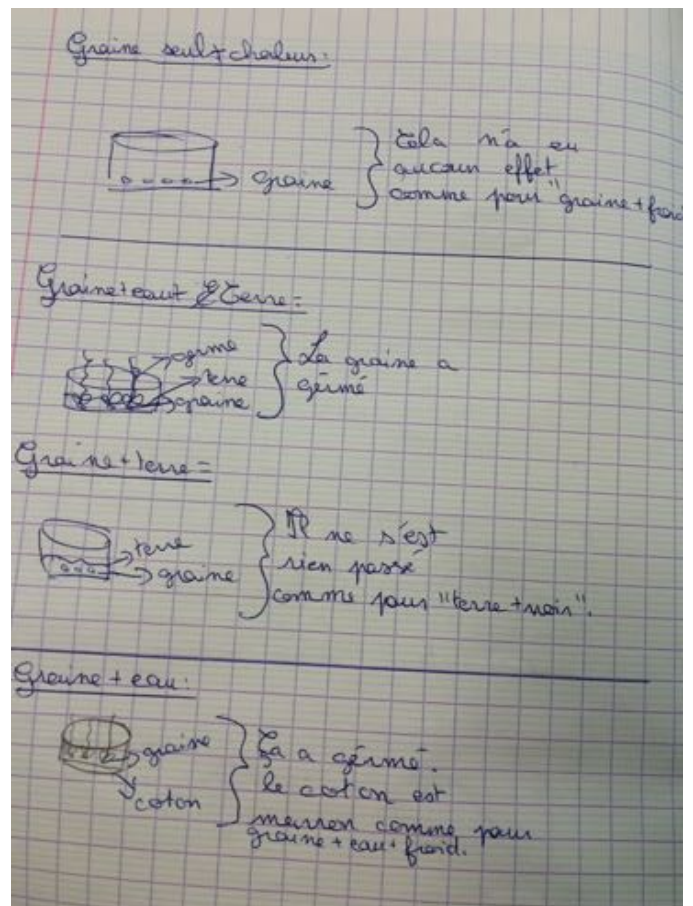 Graine seul+chaleur:
graine
Cela n'a eu
aucun effet
comme pour "graine+froid
Graine+eaut & Terre=
germe
terre
graine
La graine a
gérmé
Graine+terre=
terre
graine
Il ne s'est
rien passé
comme pour "terre+noir".
Graine+eau:
graine
coton
Ça a gérmé.
le coton est
marron comme pour
graine+eau+froid.